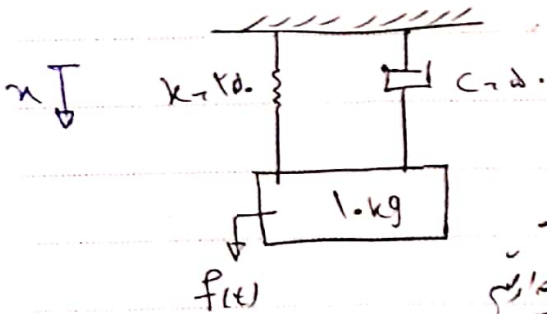 x k = ۲۵۰ C = ۵۰
۱۰ kg
f(t)